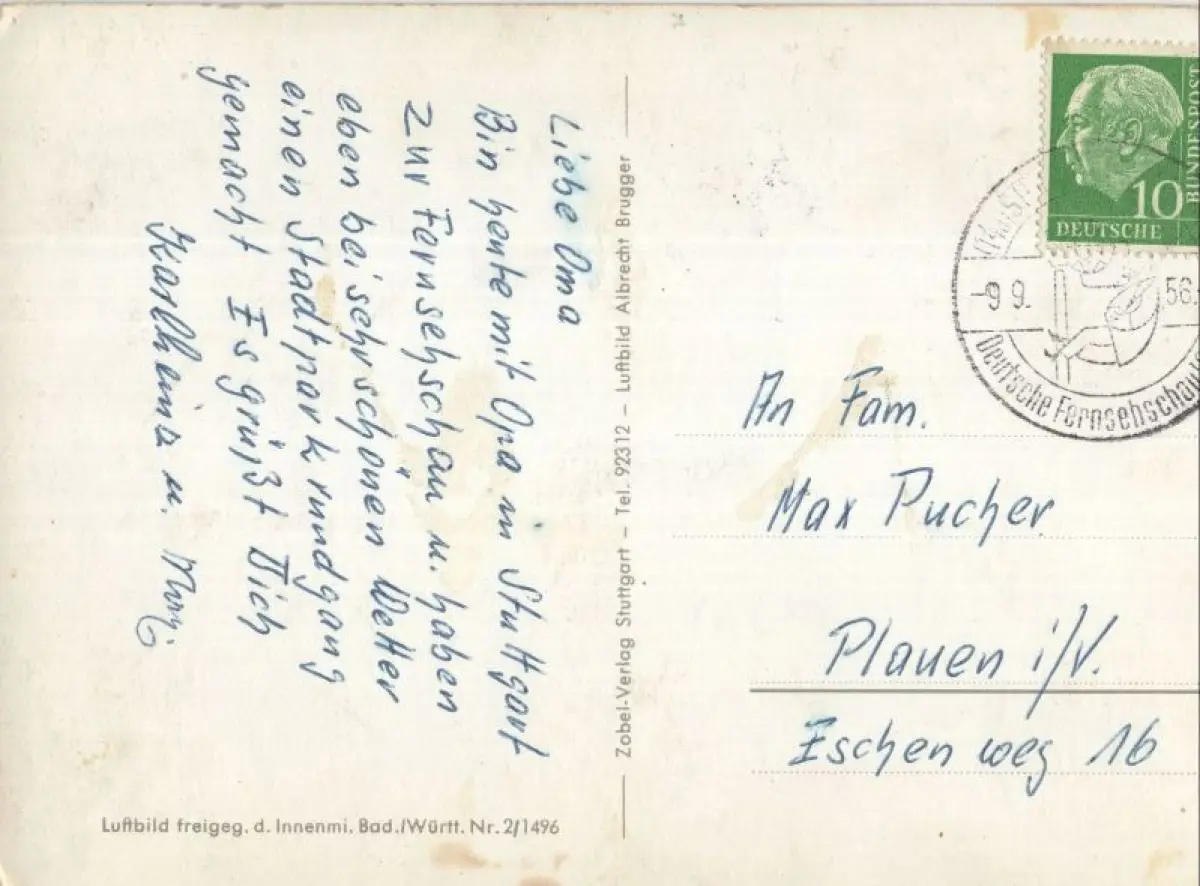 Liebe Oma
Bin heute mit Opa in Stuttgart
zur Fernsehschau u. haben
eben bei sehr schönen Wetter
einen Stadtparkrundgang
gemacht Es grüßt Dich
Karlheinz u.
Zobel-Verlag Stuttgart – Tel. 92312 – Luftbild Albrecht Brugger
Luftbild freigeg. d. Innenmi. Bad./Württ. Nr. 2/1496
10
DEUTSCHE
BUNDESPOST
-9 9.
56.
Deutsche Fernsehschau
An Fam.
Max Pucher
Plauen i/V.
Eschenweg 16